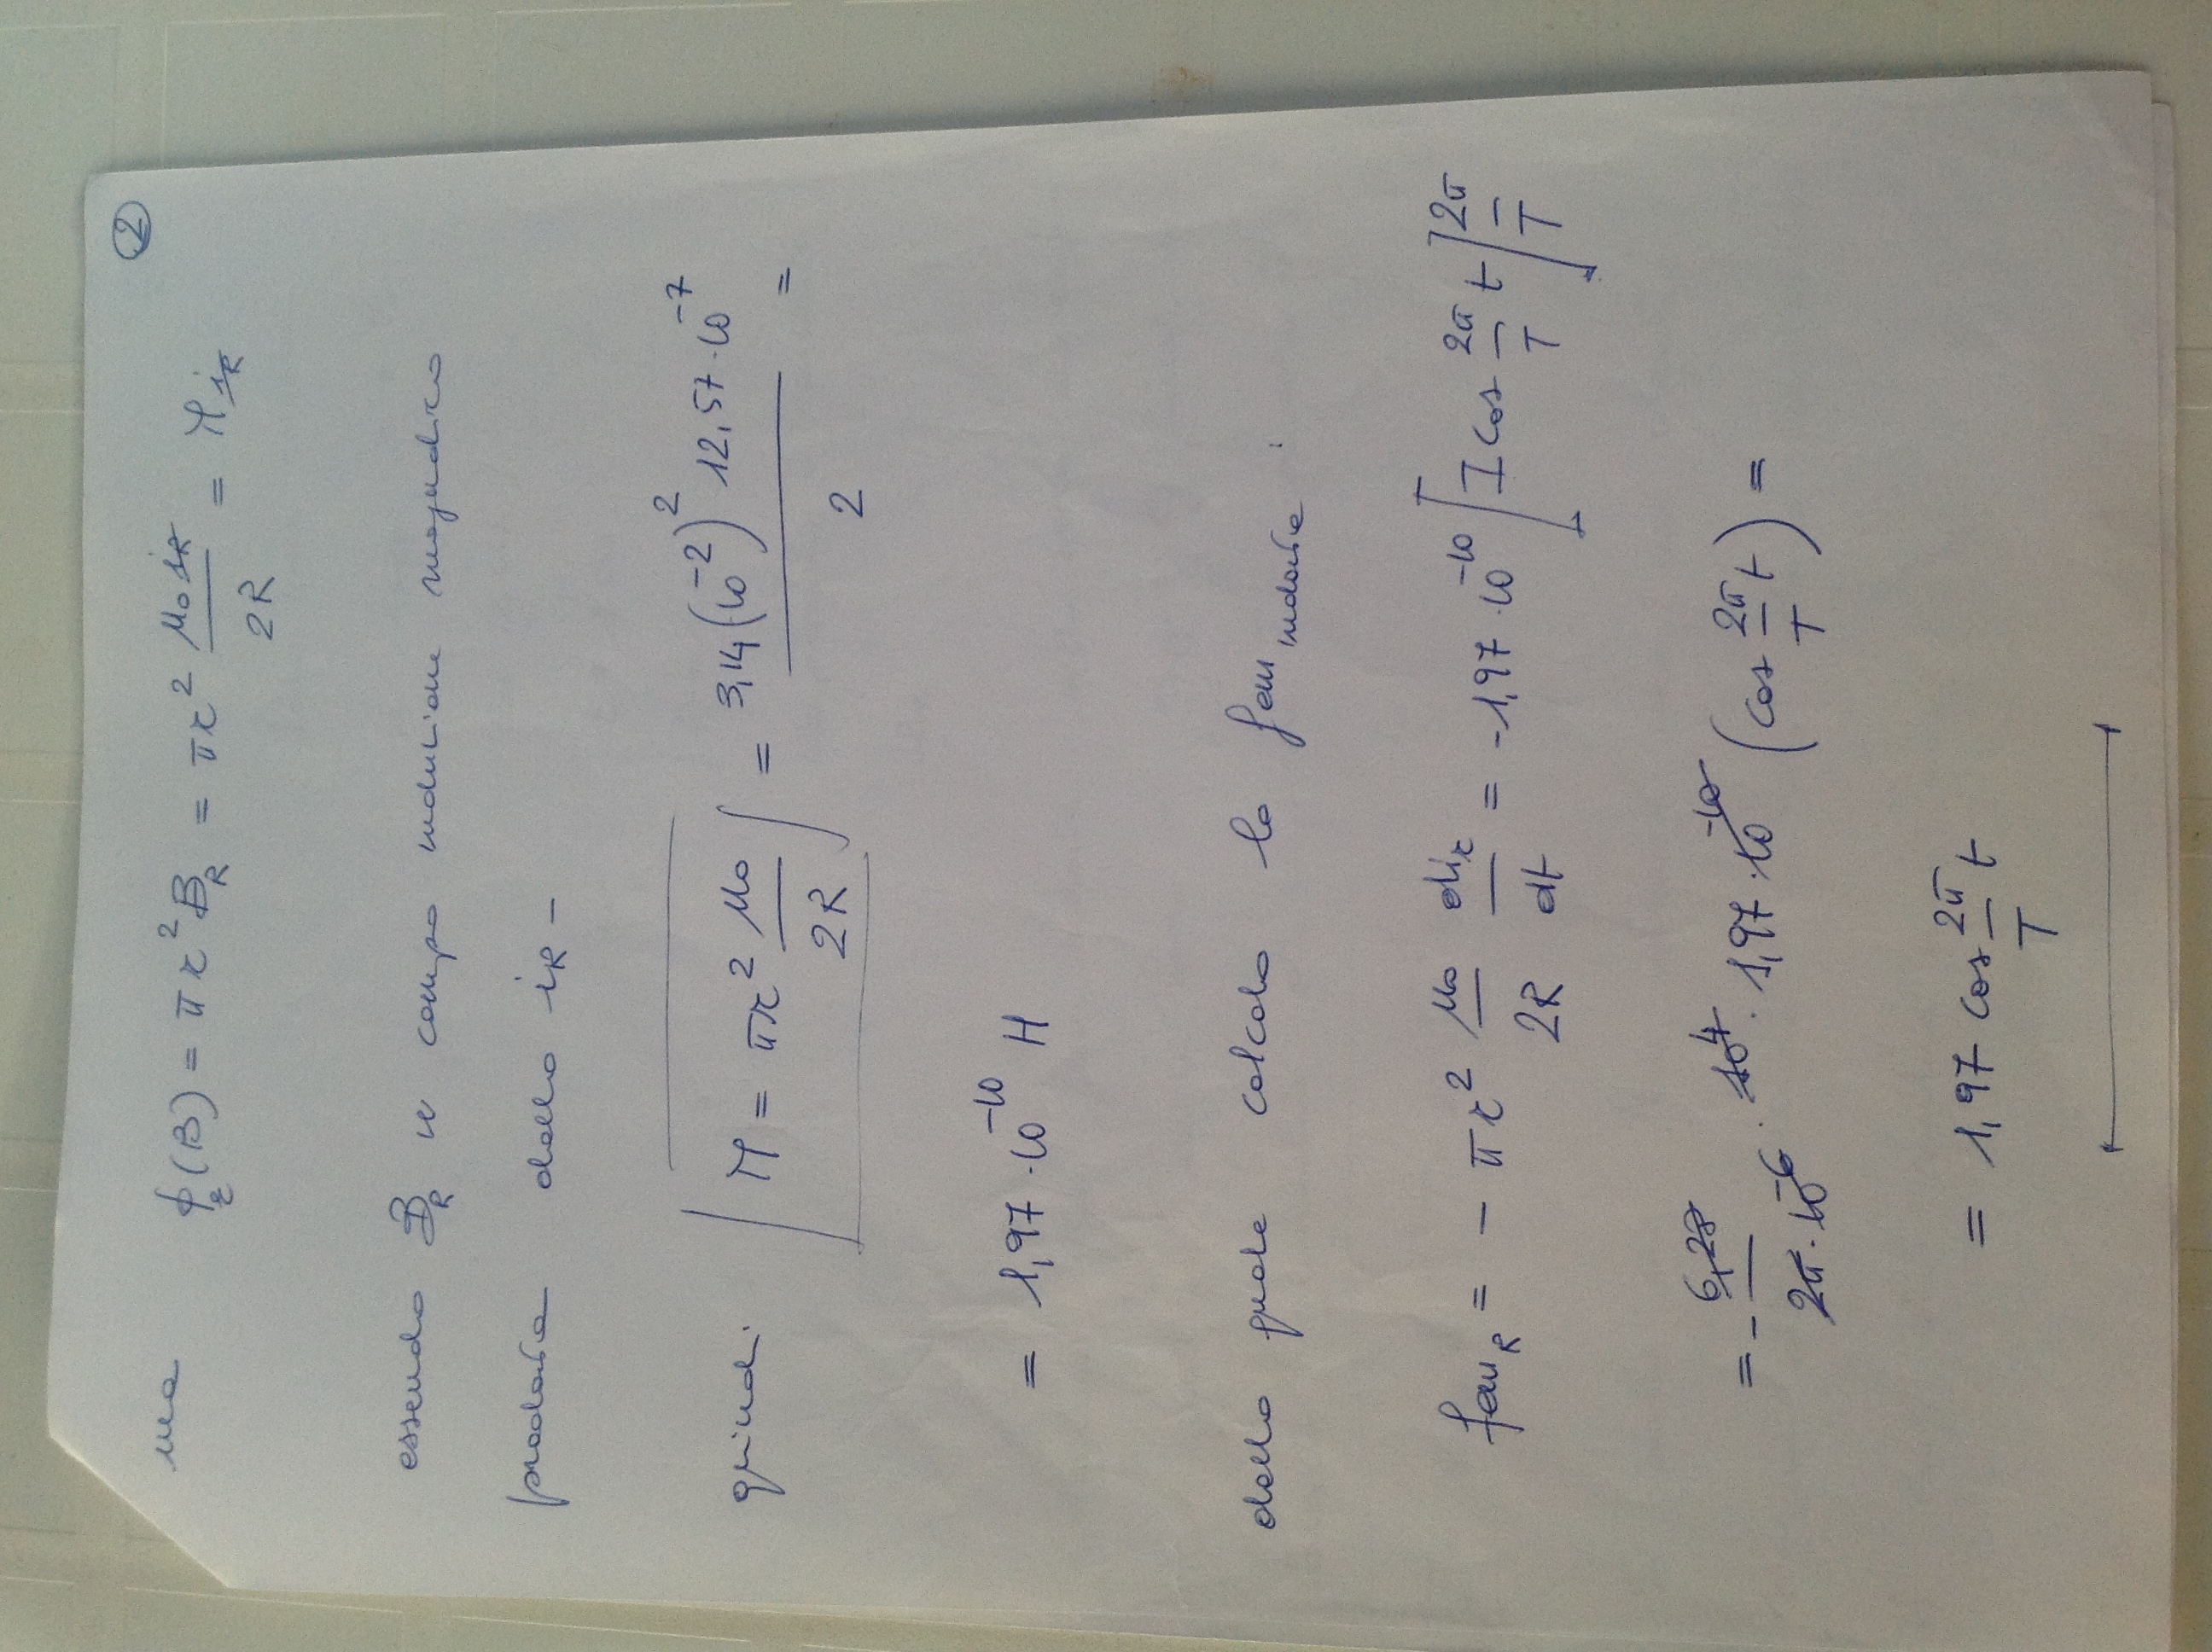 2
ma ϕ_r(B) = πr² B_R = πr² μ₀ i_R / 2R = M i_R
essendo B_R il campo induzione magnetico
prodotto dalla i_R -
quindi [M = πr² μ₀ / 2R] = 3,14 (10⁻²)² 12,57·10⁻⁷ / 2 =
= 1,97·10⁻¹⁰ H
dalla quale calcolo la fem indotta :
fem_R = - πr² μ₀ / 2R di_r / dt = -1,97·10⁻¹⁰ [I cos 2π/T t] 2π/T
= - 6,28 / 2π·10⁻⁶ · 10⁴ · 1,97·10⁻¹⁰ (cos 2π/T t) =
= 1,97 cos 2π/T t